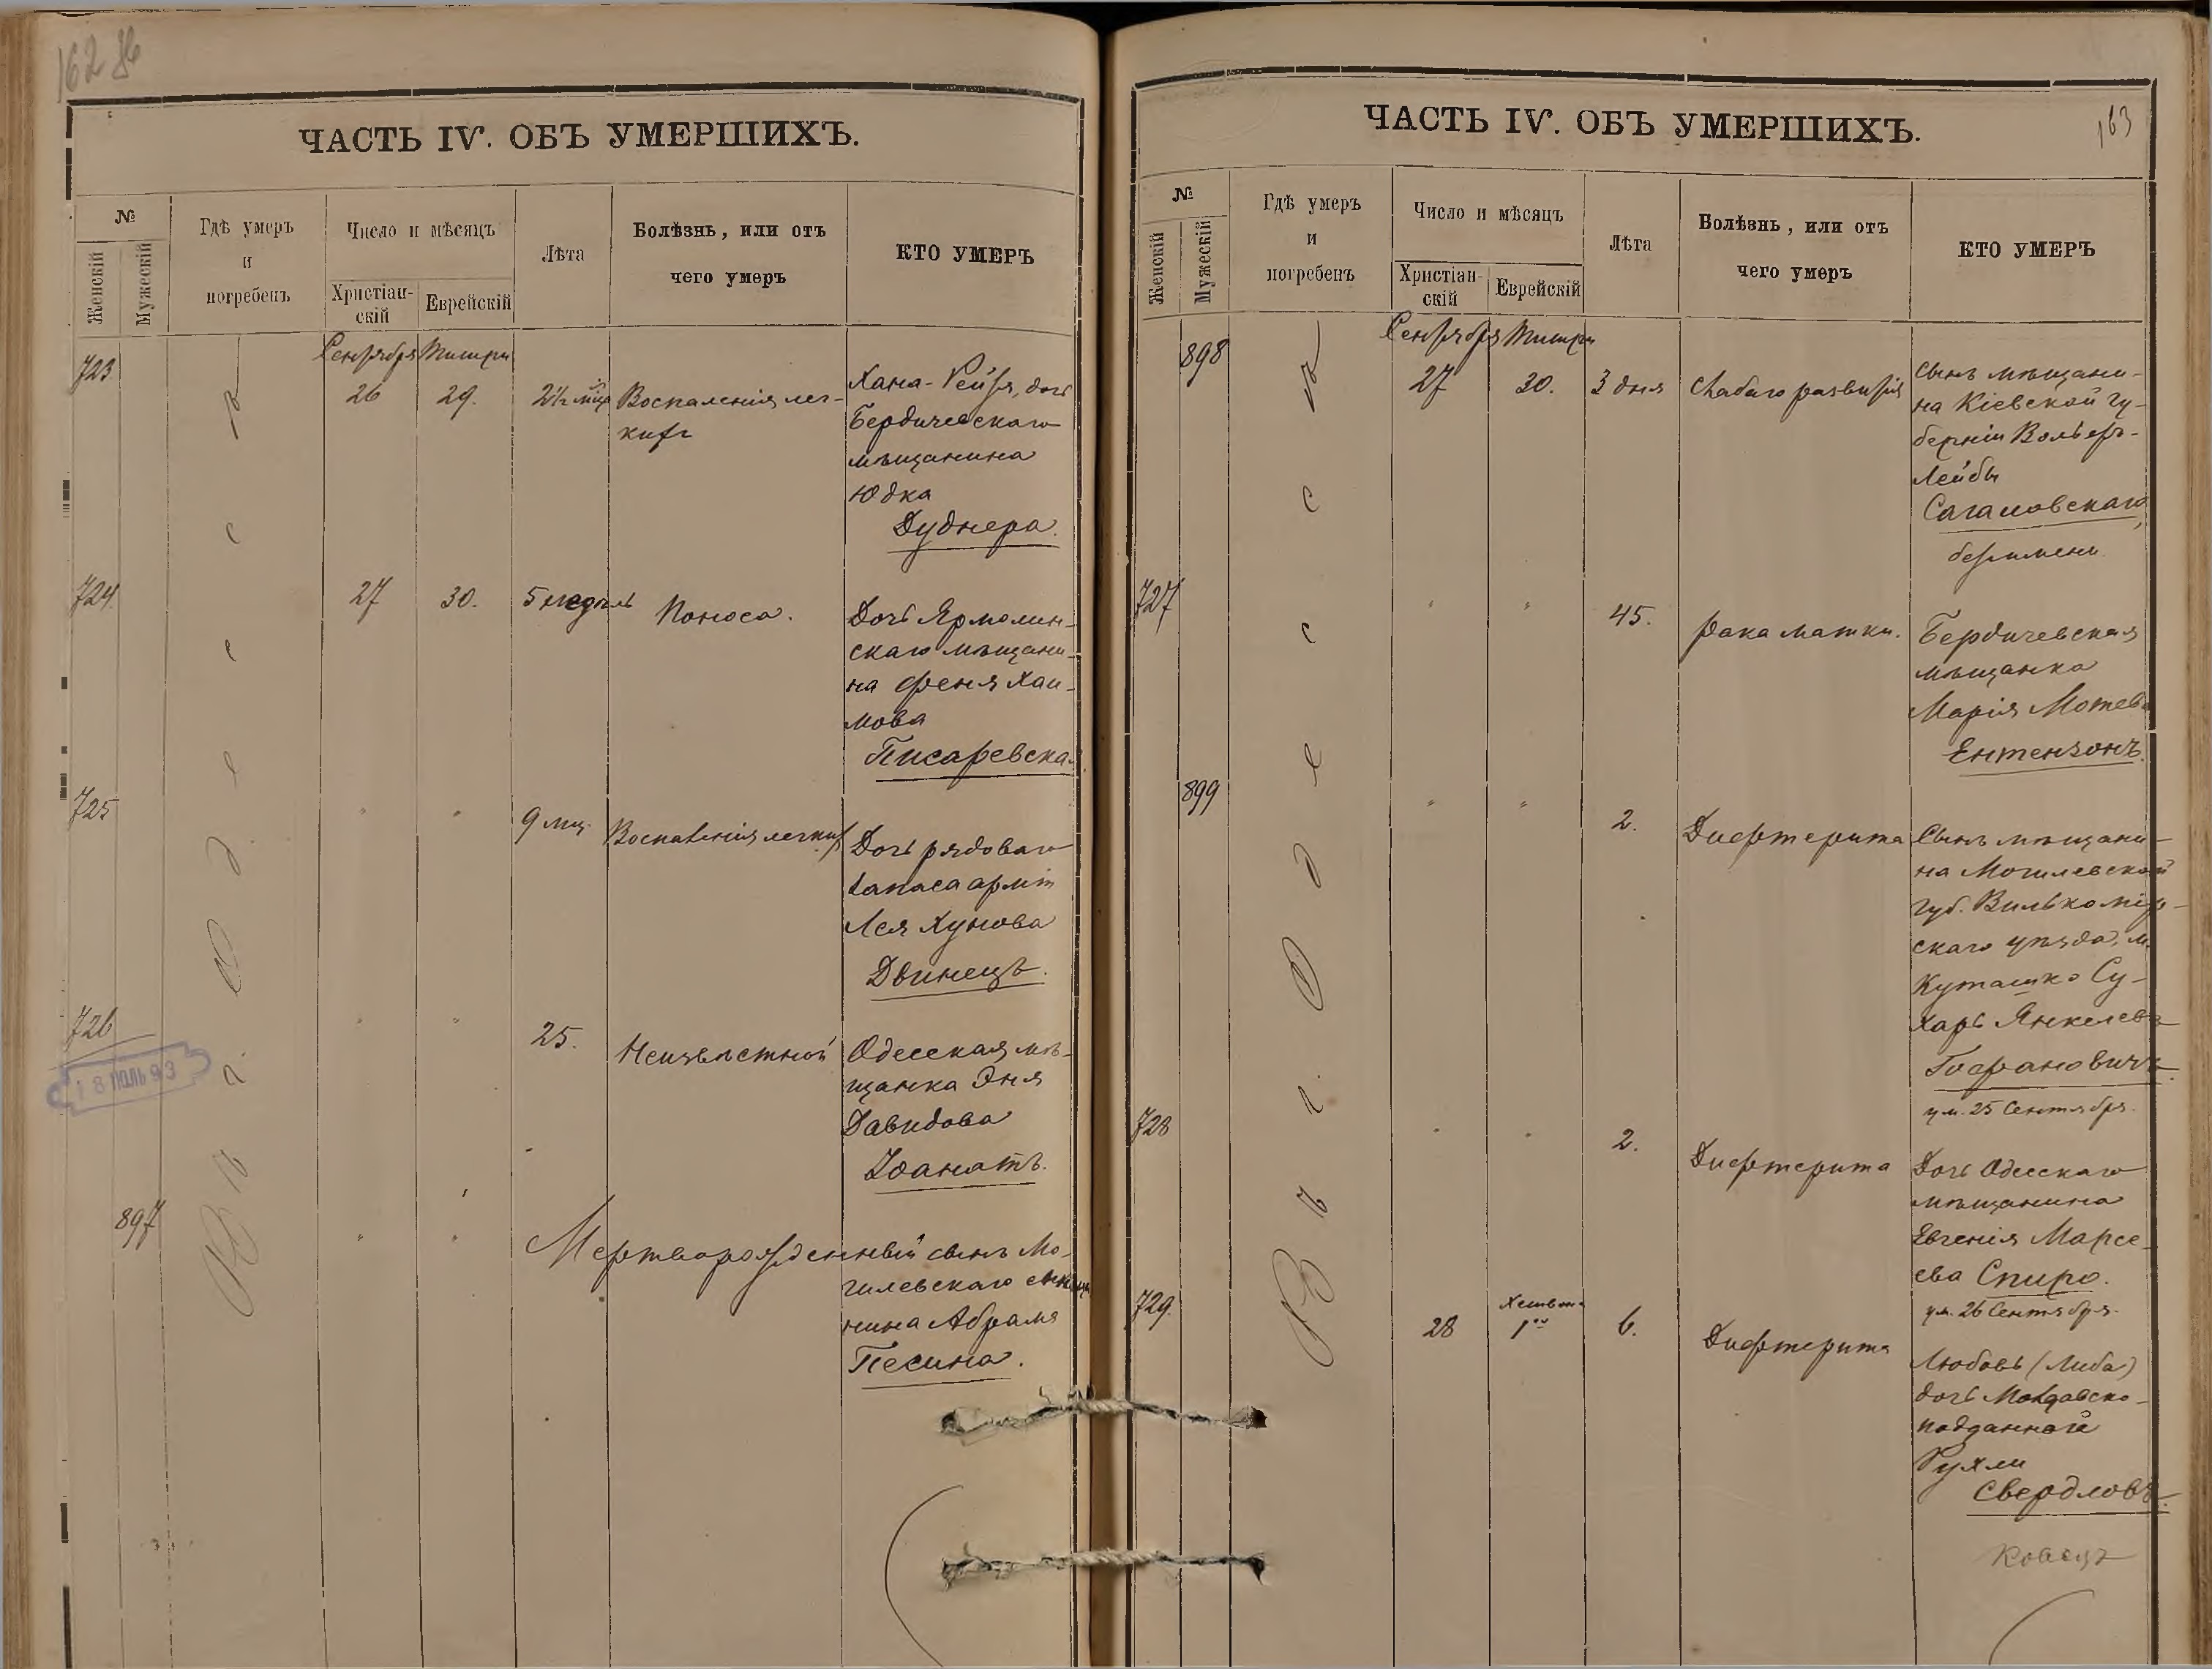 162
ЧАСТЬ IV. ОБЪ УМЕРШИХЪ.
№
Женскій
Мужескій
Гдѣ умеръ
и
погребенъ
Число и мѣсяцъ
Христіан-
скій
Еврейскій
Лѣта
Болѣзнь, или отъ
чего умеръ
КТО УМЕРЪ
Сентября Тишри
723 26 29. 2½ мца Воспаленія лег-
кихъ
Хана-Рейзя, дочь
Бердичевскаго
мѣщанина
Юдка
Дуднера.
724. 27 30. 5 недѣль Поноса.
Дочь Ярмолин-
скаго мѣщани-
на Феня Хаи-
мова
Писаревская.
725 " " 9 мц. Воспаленія легкихъ
Дочь рядоваго
запаса арміи
Лея Хунова
Двинецъ.
726 " " 25. Неизвѣстной
Одесская мѣ-
щанка Эня
Давидова
Іоанатъ.
18 ІЮЛЬ 93
897 " " Мертворожденный сынъ Мо-
гилевскаго
нина Абрама
Песина.
Въ г. Одессѣ
163
ЧАСТЬ IV. ОБЪ УМЕРШИХЪ.
№
Женскій
Мужескій
Гдѣ умеръ
и
погребенъ
Число и мѣсяцъ
Христіан-
скій
Еврейскій
Лѣта
Болѣзнь, или отъ
чего умеръ
КТО УМЕРЪ
Сентября Тишри
898 27 30. 3 дня Слабаго развитія
Сынъ мѣщани-
на Кіевской гу-
берніи Вольфъ-
Лейбы
Сагаловскаго,
безъ имени
727 " " 45. Рака матки.
Бердичевская
мѣщанка
Марія Мотева
Ентензонъ.
899 " " 2. Дифтерита
Сынъ мѣщани-
на Могилевской
губ. Вилькомір-
скаго уѣзда, м.
Куташко Су-
харь Янкелевъ
Гофрановичъ.
ум. 25 Сентября.
728 " " 2. Дифтерита
Дочь Одесскаго
мѣщанина
Евгенія Марсе-
ева Спиро.
ум. 26 Сентября.
Хешвана
729. 28 1го 6. Дифтерита
Любовь (Либа)
дочь Молдавско-
подданной
Рухли
Свердловъ.
Въ г. Одессѣ